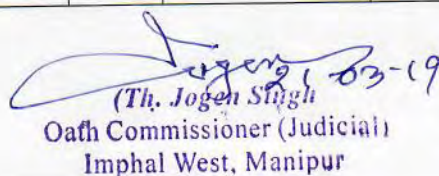 Jogen 21-03-19
(Th. Jogen Singh
Oath Commissioner (Judicial)
Imphal West, Manipur